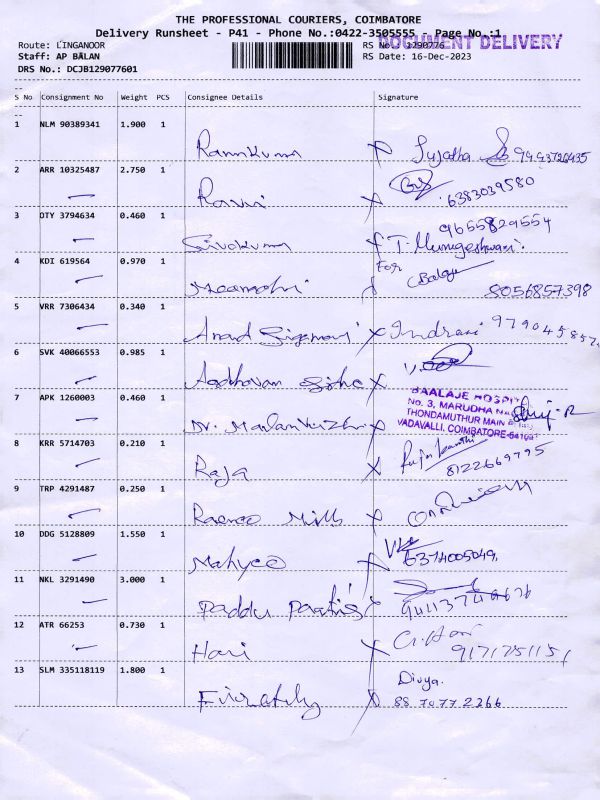 THE PROFESSIONAL COURIERS, COIMBATORE
Delivery Runsheet - P41 - Phone No.:0422-3505555 - Page No.:1
DOCUMENT DELIVERY
Route: LINGANOOR RS No: 1290776
Staff: AP BALAN RS Date: 16-Dec-2023
DRS No.: DCJB129077601
S No Consignment No Weight PCS Consignee Details Signature
1 NLM 90389341 1.900 1
Ramkuma Sujatha
2 ARR 10325487 2.750 1
Ravi 6383039580
3 DTY 3794634 0.460 1
9655829554
Sivakuma T. Murugeshwari.
4 KDI 619564 0.970 1
For Balaju
8056857398
5 VRR 7306434 0.340 1
Anand Indrani
6 SVK 40066553 0.985 1
Aadhavan
7 APK 1260003 0.460 1
BAALAJE HOSPIT
No. 3, MARUDHA
THONDAMUTHUR MAIN
VADAVALLI, COIMBATORE-641041
Dr.
8 KRR 5714703 0.210 1
Raja 8122669795
9 TRP 4291487 0.250 1
Mills
10 DDG 5128809 1.550 1
Mahyco 6374005049
11 NKL 3291490 3.000 1
Paddu
12 ATR 66253 0.730 1
Hari G. Hari
9171751151
13 SLM 335118119 1.800 1
Divya.
88 7077 2266